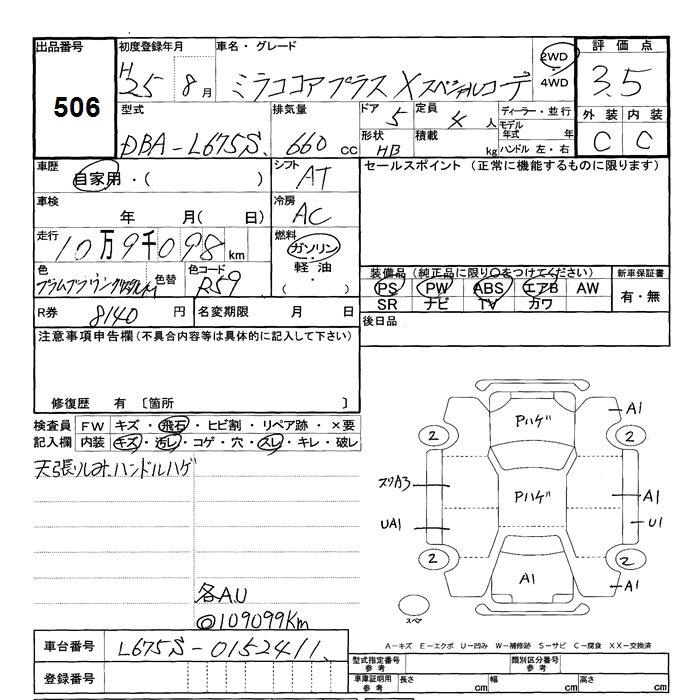 出品番号 506
初度登録年月 H25 8月
車名・グレード ミラココアプラス X スペシャルコーデ
2WD・4WD
評価点 3.5
外装 内装
C C
型式 DBA-L675S
排気量 660 cc
ドア 5
定員 4 人
形状 HB
積載 kg
ディーラー・並行
モデル年式 年
ハンドル 左・右
車歴 自家用・( )
シフト AT
セールスポイント (正常に機能するものに限ります)
車検 年 月( 日)
冷房 AC
走行 10万9千098 km
燃料 ガソリン・軽油・( )
色 プラムブラウンクリスタルM 色替
色コード R59
装備品(純正品に限り○をつけてください)
PS PW ABS エアB AW
SR ナビ TV カワ
新車保証書 有・無
R券 8140 円
名変期限 月 日
後日品
注意事項申告欄(不具合内容等は具体的に記入して下さい)
修復歴 有 〔箇所 〕
検査員記入欄
FW キズ・飛石・ヒビ割・リペア跡・×要
内装 キズ・汚レ・コゲ・穴・スレ・キレ・破レ
天張りしみ、ハンドルハゲ
各A.U
◎109099Km
Pハゲ
A1
2
2
スリA3
Pハゲ
A1
UA1
U1
2
2
A1
A1
スペア
A-キズ E-エクボ U-凹み W-補修跡 S-サビ C-腐食 XX-交換済
車台番号 L675S-0152411
登録番号
型式指定番号 参考
類別区分番号 参考
車庫証明用 参考 長さ cm 幅 cm 高さ cm